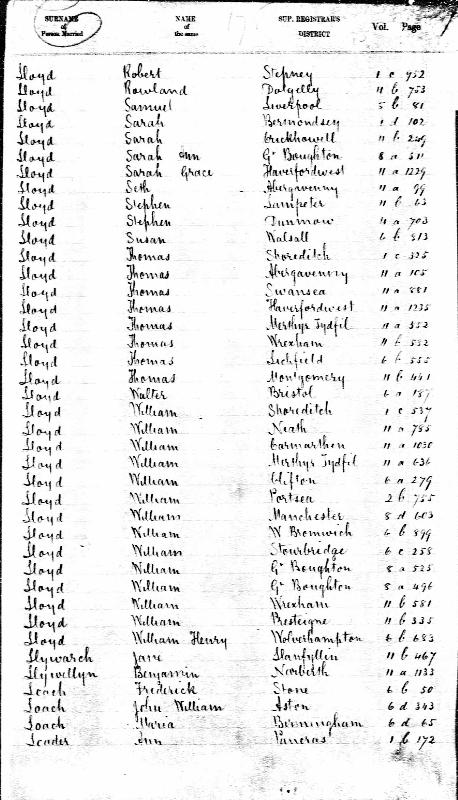 SURNAME of Person Married NAME of the same SUP. REGISTRAR'S DISTRICT Vol. Page
Lloyd Robert Stepney 1 c 952
Lloyd Rowland Dolgelly 11 b 753
Lloyd Samuel Liverpool 5 b 81
Lloyd Sarah Bermondsey 1 d 102
Lloyd Sarah Crickhowell 11 b 249
Lloyd Sarah Ann Gt Boughton 8 a 511
Lloyd Sarah Grace Haverfordwest 11 a 1229
Lloyd Seth Abergavenny 11 a 99
Lloyd Stephen Lampeter 11 b 63
Lloyd Stephen Dunmow 4 a 703
Lloyd Susan Walsall 6 b 813
Lloyd Thomas Shoreditch 1 c 325
Lloyd Thomas Abergavenny 11 a 105
Lloyd Thomas Swansea 11 a 881
Lloyd Thomas Haverfordwest 11 a 1235
Lloyd Thomas Merthyr Tydfil 11 a 552
Lloyd Thomas Wrexham 11 b 532
Lloyd Thomas Lichfield 6 b 555
Lloyd Thomas Montgomery 11 b 441
Lloyd Walter Bristol 6 a 187
Lloyd William Shoreditch 1 c 537
Lloyd William Neath 11 a 785
Lloyd William Carmarthen 11 a 1030
Lloyd William Merthyr Tydfil 11 a 636
Lloyd William Clifton 6 a 279
Lloyd William Portsea 2 b 755
Lloyd William Manchester 8 d 603
Lloyd William W Bromwich 6 b 899
Lloyd William Stourbridge 6 c 258
Lloyd William Gt Boughton 8 a 525
Lloyd William Gt Boughton 8 a 496
Lloyd William Wrexham 11 b 581
Lloyd William Presteigne 11 b 335
Lloyd William Henry Wolverhampton 6 b 683
Llywarch Jane Llanfyllin 11 b 467
Llywellyn Benjamin Narberth 11 a 1133
Loach Frederick Stone 6 b 50
Loach John William Aston 6 d 343
Loach Maria Birmingham 6 d 65
Loader Ann Pancras 1 b 172